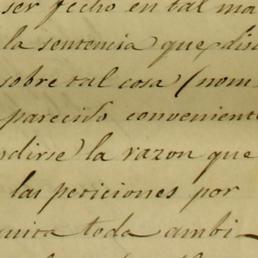 ser fecho en tal ma
la sentencia que dis
sobre tal cosa (nom
parecido conveniente
ndirse) la razon que
las peticiones por
quita toda ambi-